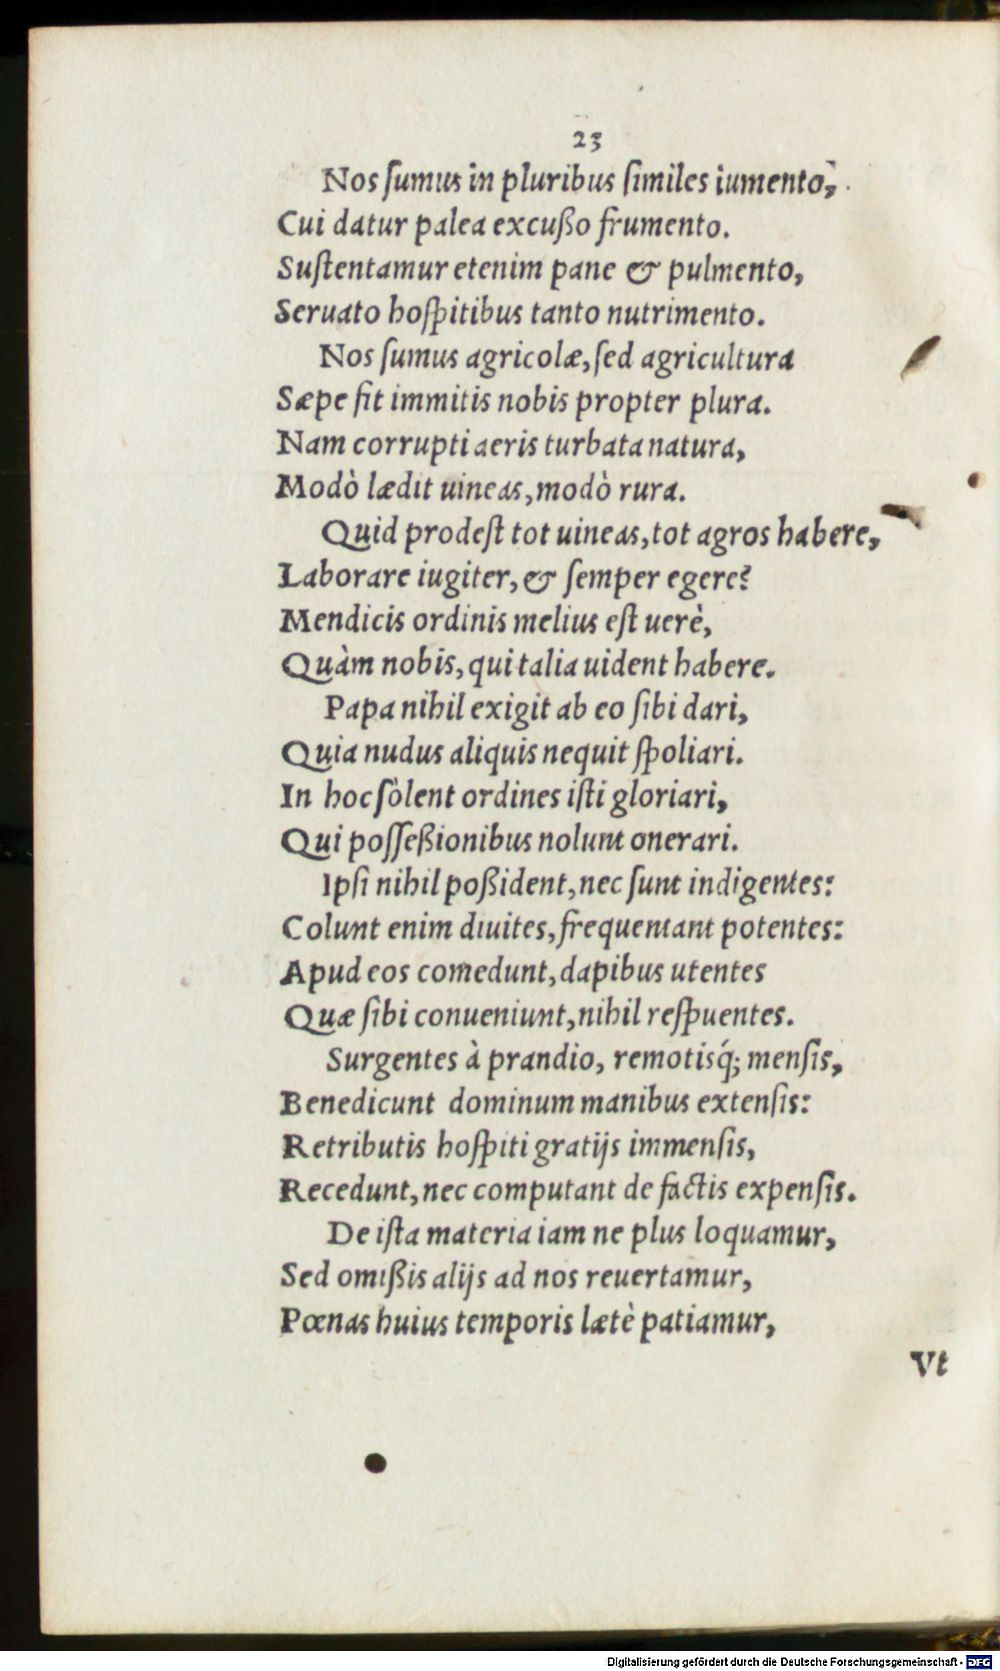 23
Nos ſumus in pluribus ſimiles iumento,
Cui datur palea excußo frumento.
Suſtentamur etenim pane & pulmento,
Seruato hoſpitibus tanto nutrimento.
Nos ſumus agricolæ, ſed agricultura
Sæpe fit immitis nobis propter plura.
Nam corrupti aeris turbata natura,
Modò lædit uineas, modò rura.
Quid prodeſt tot uineas, tot agros habere,
Laborare iugiter, & ſemper egere?
Mendicis ordinis melius eſt uerè,
Quàm nobis, qui talia uident habere.
Papa nihil exigit ab eo ſibi dari,
Quia nudus aliquis nequit ſpoliari.
In hoc ſolent ordines iſti gloriari,
Qui poſſeßionibus nolunt onerari.
Ipſi nihil poßident, nec ſunt indigentes:
Colunt enim diuites, frequentant potentes:
Apud eos comedunt, dapibus utentes
Quæ ſibi conueniunt, nihil reſpuentes.
Surgentes à prandio, remotisq́; menſis,
Benedicunt dominum manibus extenſis:
Retributis hoſpiti gratijs immenſis,
Recedunt, nec computant de factis expenſis.
De iſta materia iam ne plus loquamur,
Sed omißis alijs ad nos reuertamur,
Pœnas huius temporis lætè patiamur,
Vt
Digitalisierung gefördert durch die Deutsche Forschungsgemeinschaft - DFG